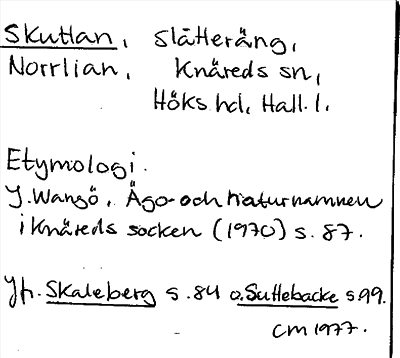 Skutlan, Slåtteräng,
Norrlian, Knäreds sn,
Höks hd, Hall. l.
Etymologi.
J. Wangö, Ägo- och naturnamnen
i Knäreds socken (1970) s. 87.
Jfr. Skaleberg s. 84 o. Suttebacke s 99.
CM 1977.